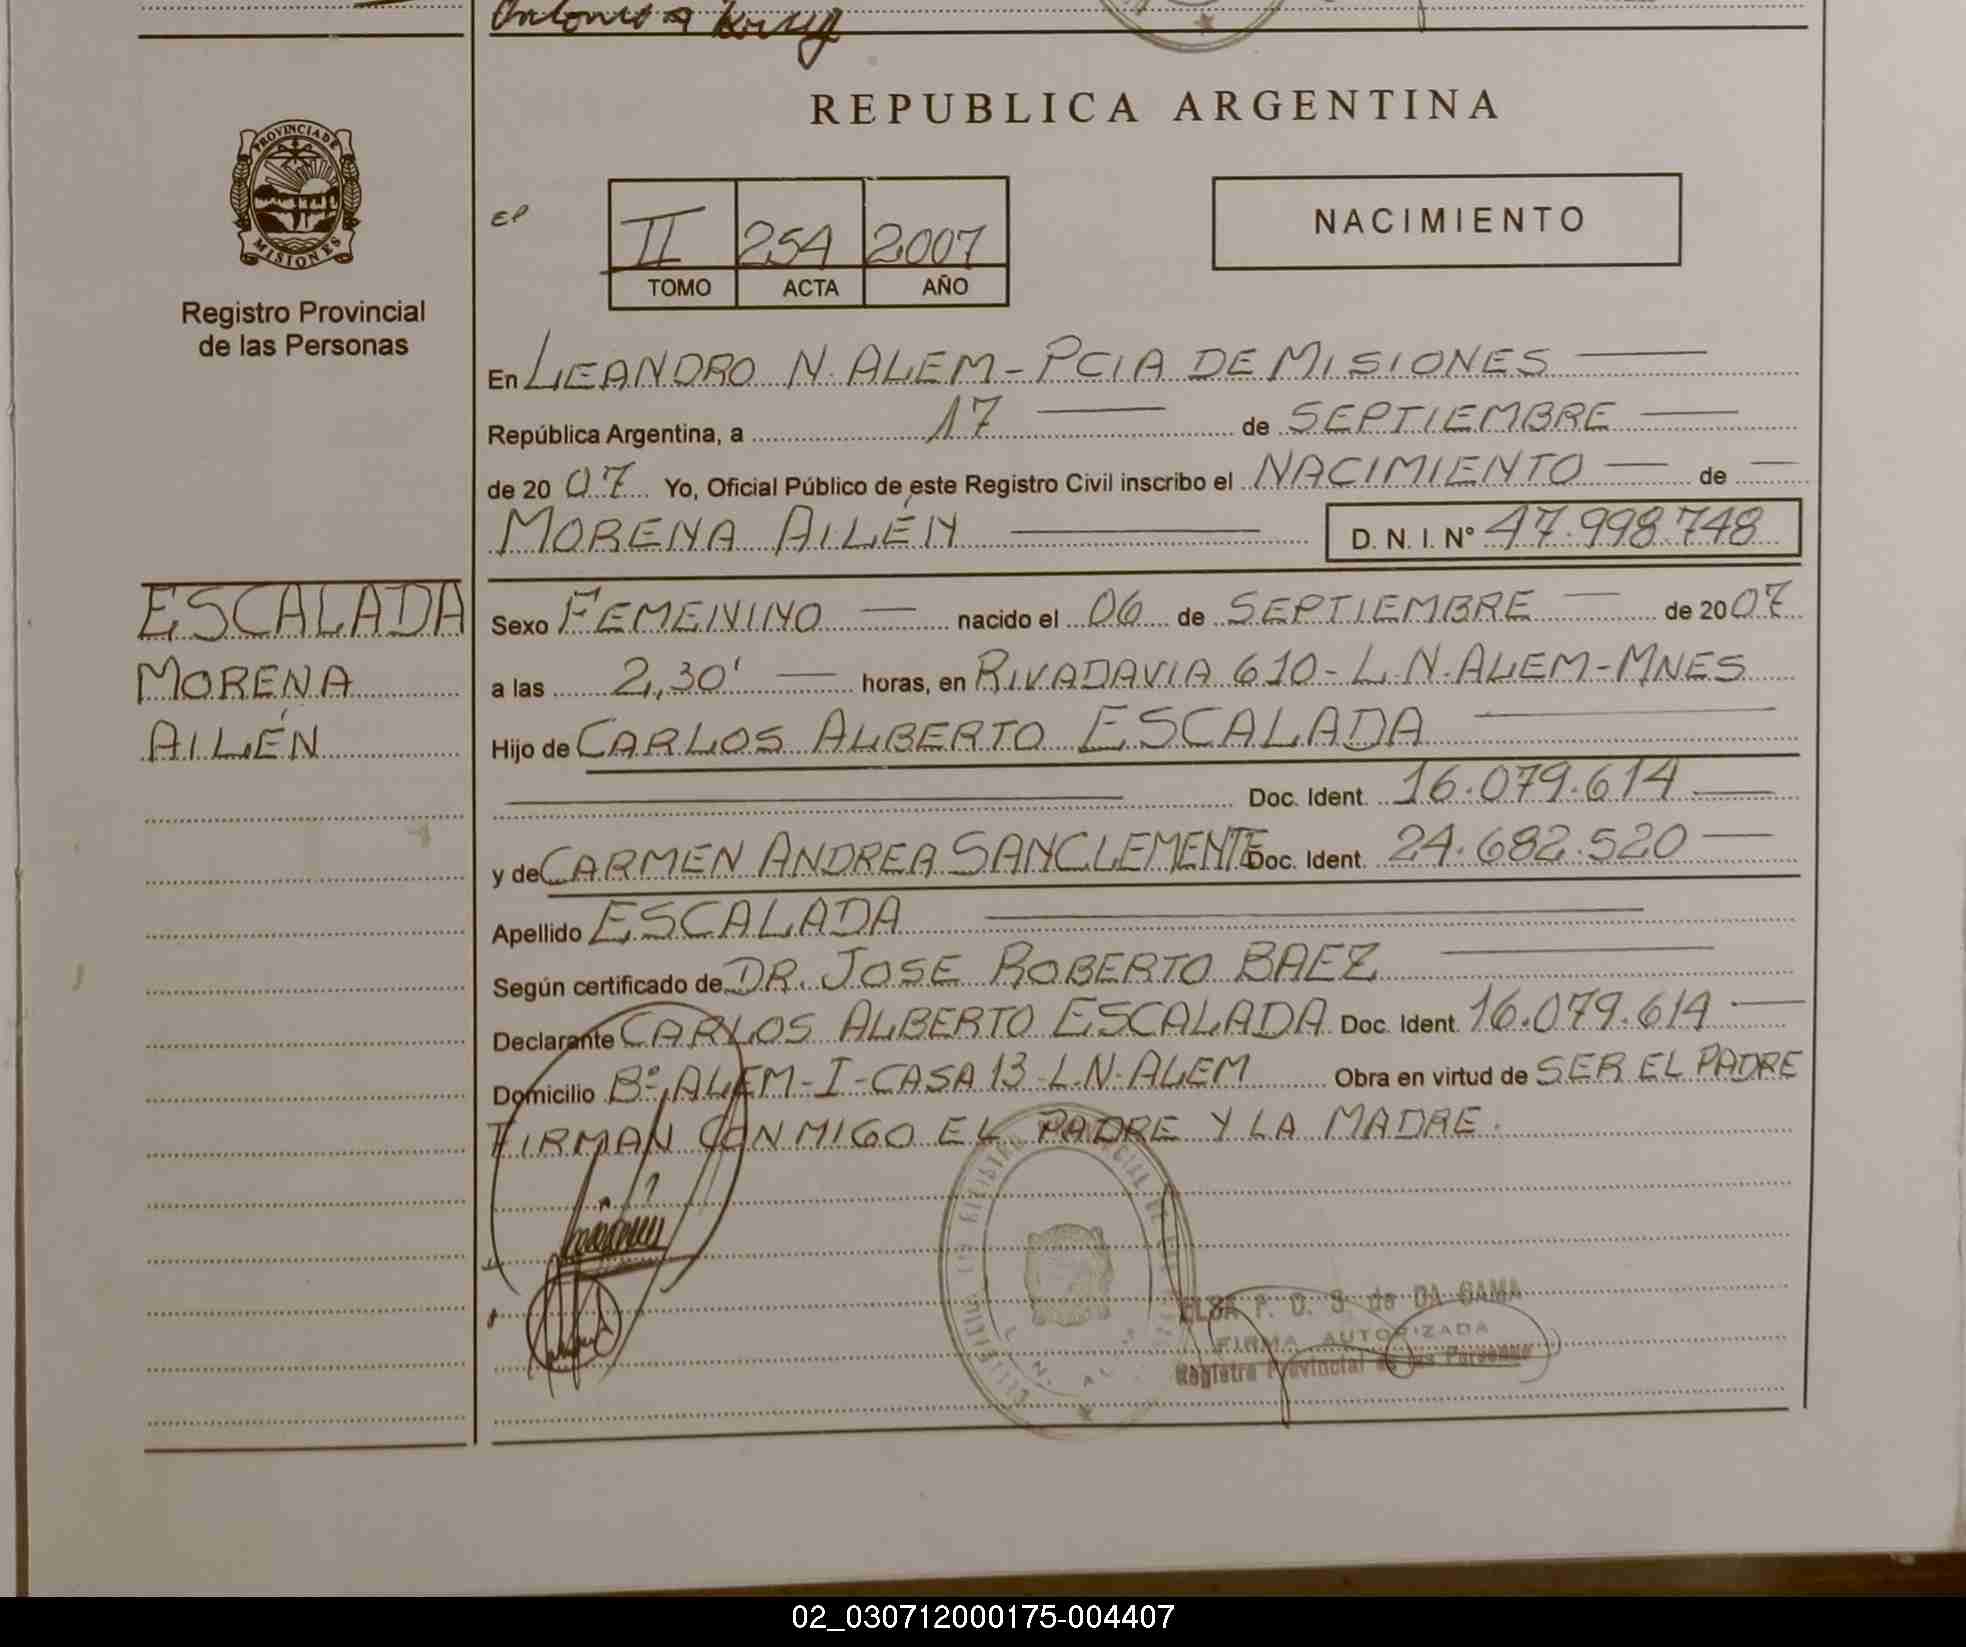 Antonio Krug
REPUBLICA ARGENTINA
PROVINCIA DE
MISIONES
Registro Provincial
de las Personas
EP
II 254 2007
TOMO ACTA AÑO
NACIMIENTO
En LEANDRO N. ALEM - PCIA DE MISIONES
República Argentina, a 17 de SEPTIEMBRE
de 20 07 Yo, Oficial Público de este Registro Civil inscribo el NACIMIENTO de
MORENA AILÉN D. N. I. N° 47.998.748
ESCALADA
MORENA
AILÉN
Sexo FEMENINO nacido el 06 de SEPTIEMBRE de 20 07
a las 2,30' horas, en RIVADAVIA 610 - L.N. ALEM - MNES
Hijo de CARLOS ALBERTO ESCALADA
Doc. Ident. 16.079.614
y de CARMEN ANDREA SANCLEMENTE Doc. Ident. 24.682.520
Apellido ESCALADA
Según certificado de DR. JOSE ROBERTO BAEZ
Declarante CARLOS ALBERTO ESCALADA Doc. Ident. 16.079.614
Domicilio Bº ALEM - I - CASA 13 - L.N. ALEM Obra en virtud de SER EL PADRE
FIRMAN CONMIGO EL PADRE Y LA MADRE.
ELSA F. D. S de DA GAMA
FIRMA AUTORIZADA
Registro Provincial de las Personas
02_030712000175-004407